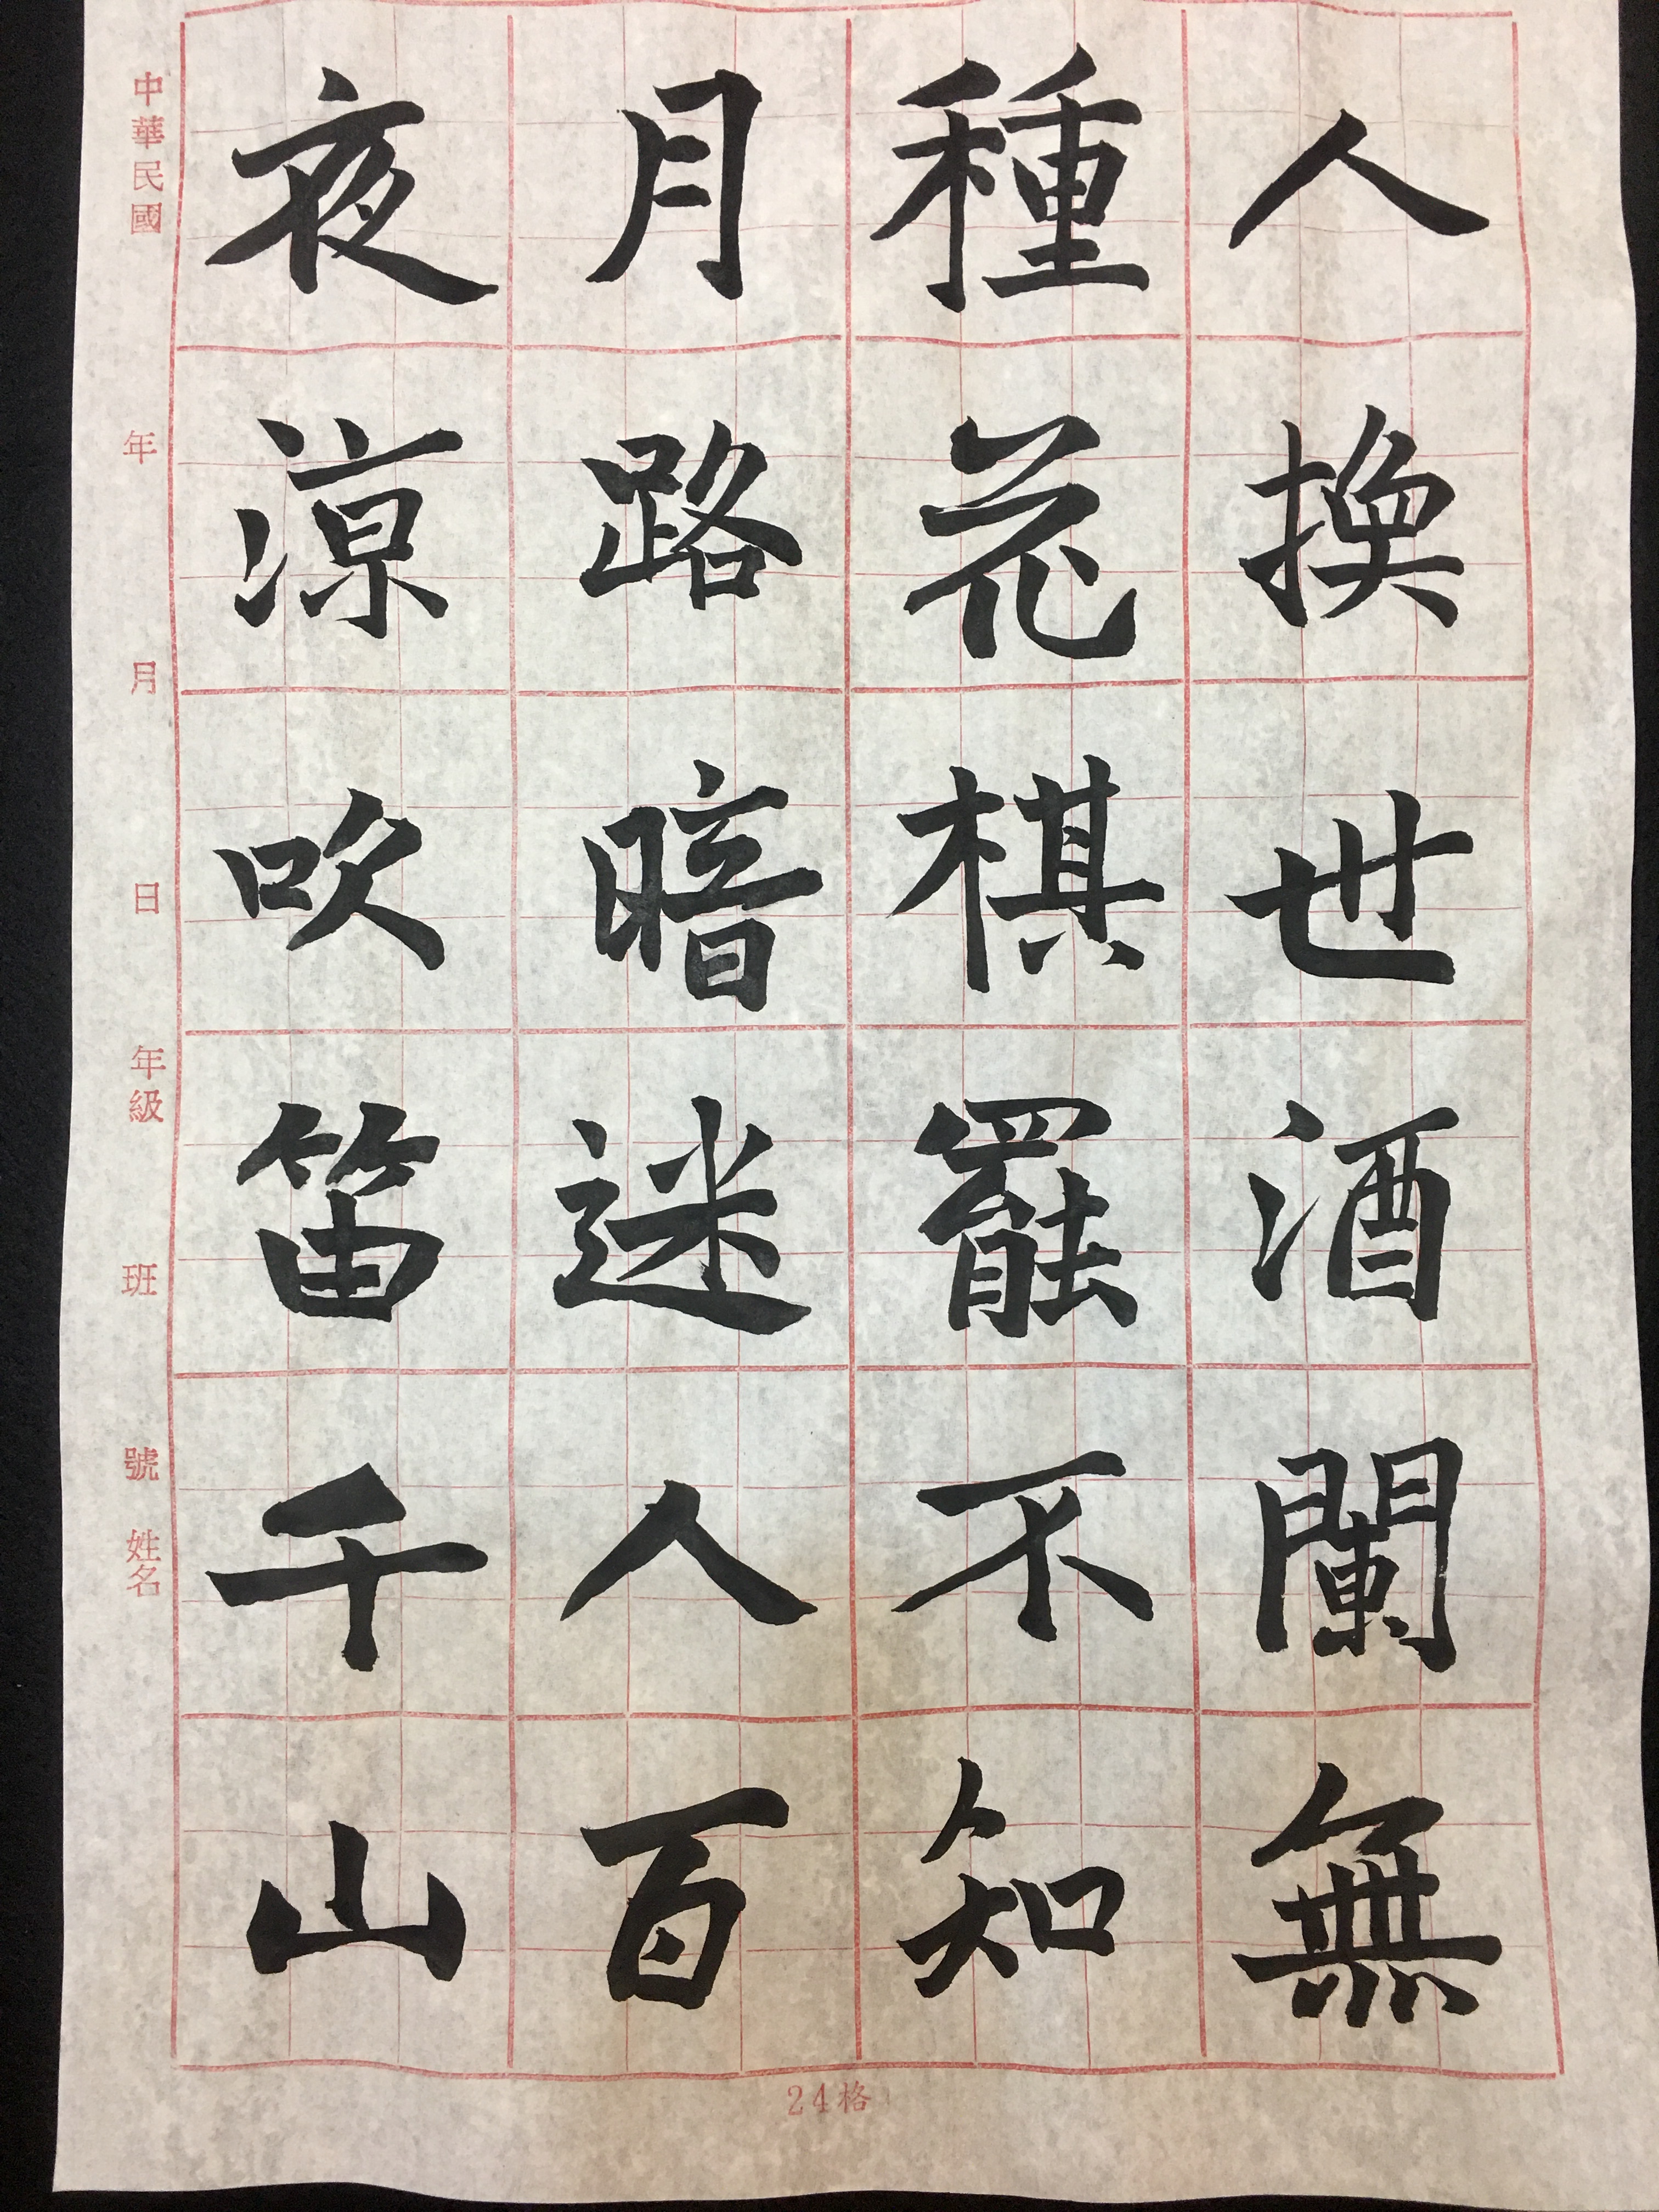 人換世酒闌無
種花棋罷不知
月路暗迷人百
夜涼吹笛千山
中華民國 年 月 日 年級 班 號 姓名
24格